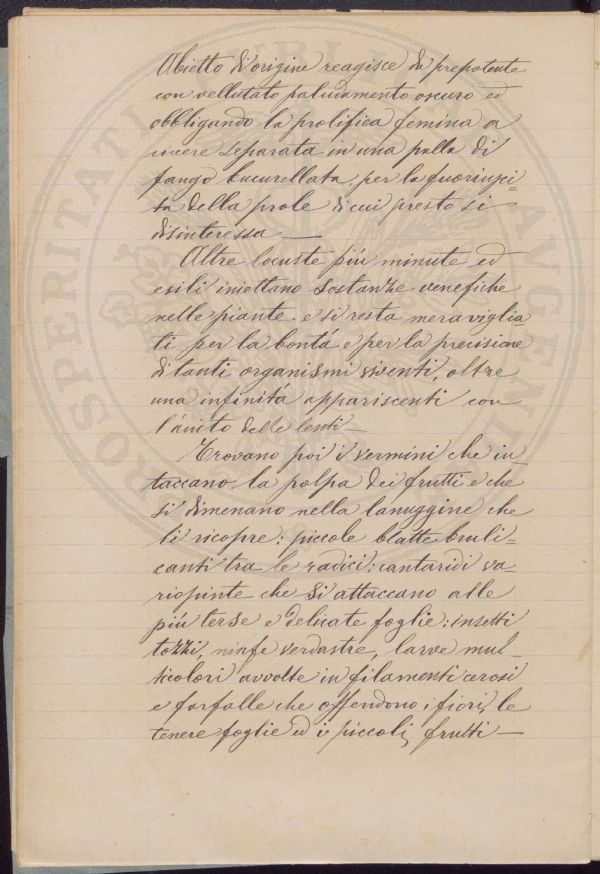 Abietto di origine reagisce da prepotente
con vellutato paludamento oscuro ed
obbligando la prolifica femina a
vivere separata in una palla di
fango bucurellata, per la fuoriusci=
ta della prole di cui presto si
disinteressa —
Altre locuste piú minute ed
esili iniettano sostanze venefiche
nelle piante e si resta meraviglia
ti per la bontá e per la precisione
di tanti organismi viventi, oltre
una infinitá appariscenti con
l'aiuto delle lenti —
Trovano poi i vermini che in
taccano la polpa dei frutti e che
si dimenano nella lanuggine che
li ricopre; piccole blatte bruli=
canti tra le radici; cantaridi va=
riopinte che si attaccano alle
piú terse e delicate foglie; insetti
tozzi, ninfe verdastre, larve mul_
ticolori avvolte in filamenti cerosi
e farfalle che offendono i fiori, le
tenere foglie ed i piccoli frutti —
PROSPERITATI PUBLI AUGEN